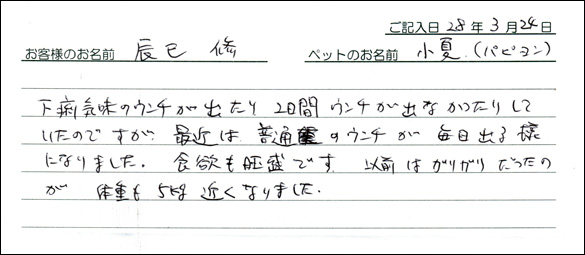 ご記入日 28年3月24日
お客様のお名前 辰巳 修 ペットのお名前 小夏(パピヨン)
下痢気味のウンチが出たり 2日間 ウンチが出なかったりして
いたのですが、最近は、普通 のウンチが毎日出る様
になりました。食欲も旺盛です 以前はガリガリだったの
が 体重も5kg近くなりました。